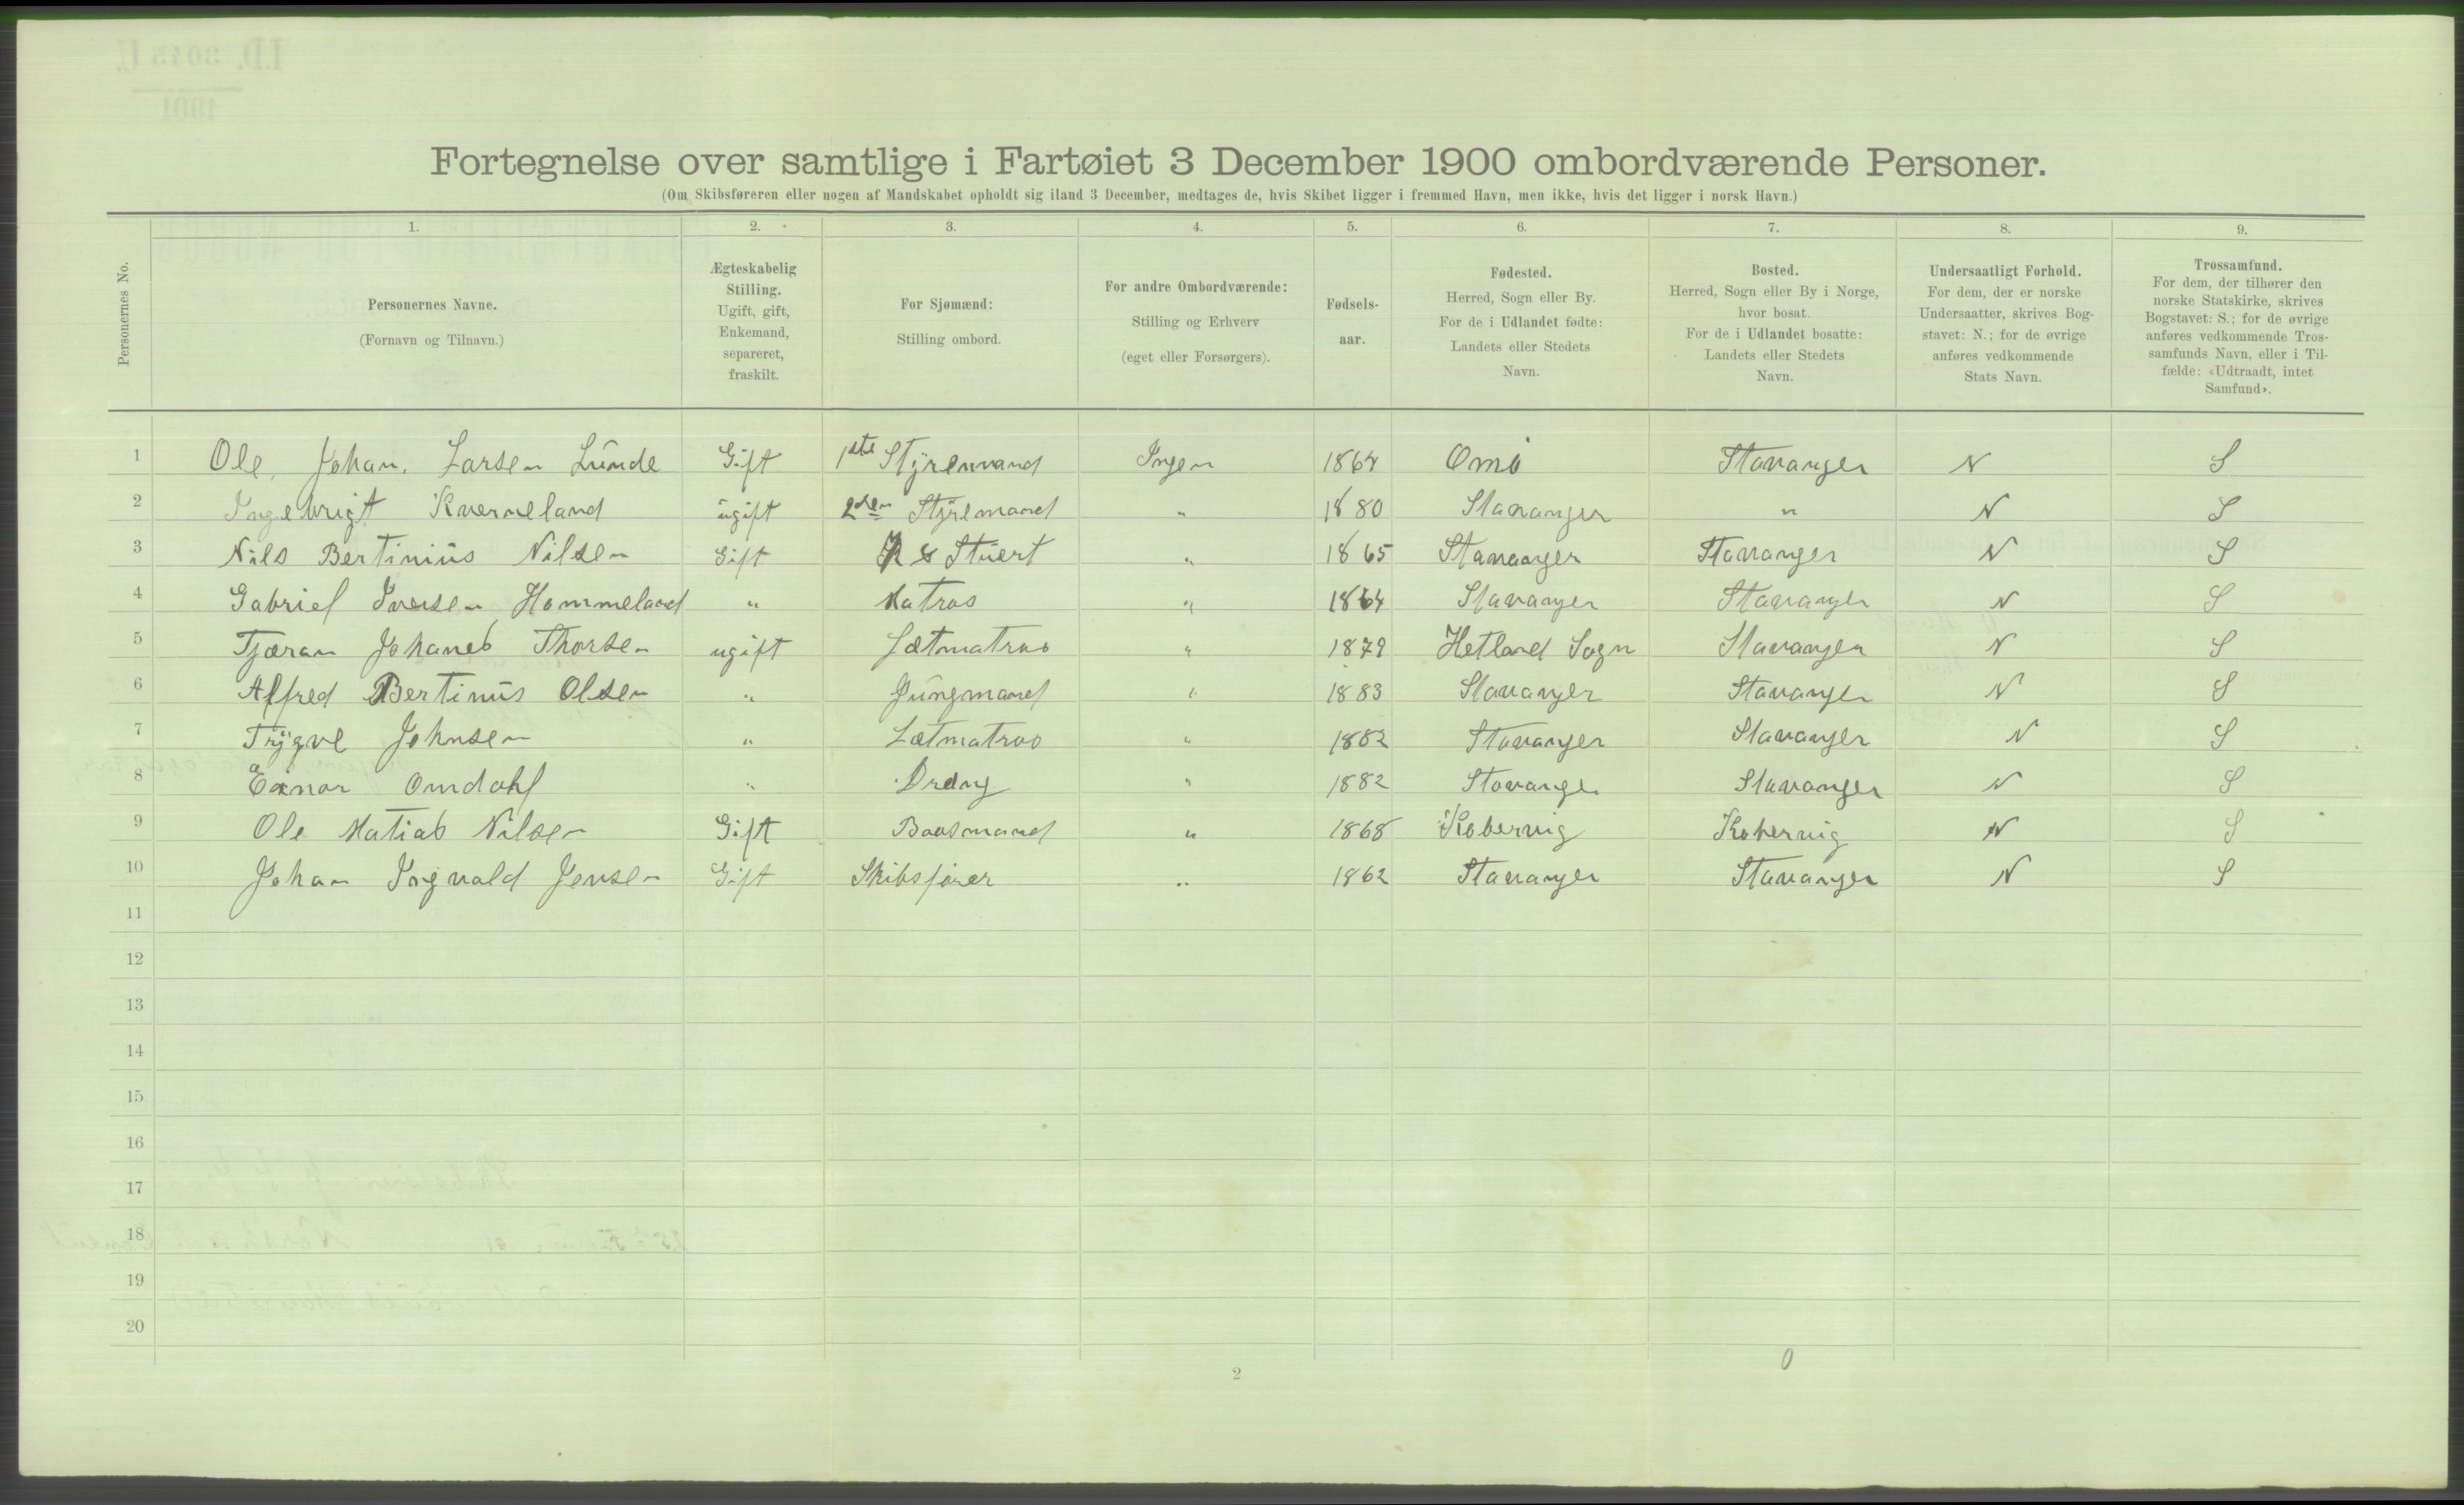 Fortegnelse over samtlige i Fartøiet 3 December 1900 ombordværende Personer.
(Om Skibsføreren eller nogen af Mandskabet opholdt sig iland 3 December, medtages de, hvis Skibet ligger i fremmed Havn, men ikke, hvis det ligger i norsk Havn.)
Personernes No.
1. 2. 3. 4. 5. 6. 7. 8. 9.
Personernes Navne.
(Fornavn og Tilnavn.)
Ægteskabelig
Stilling.
Ugift, gift,
Enkemand,
separeret,
fraskilt.
For Sjømænd:
Stilling ombord.
For andre Ombordværende:
Stilling og Erhverv
(eget eller Forsørgers).
Fødsels-
aar.
Fødested.
Herred, Sogn eller By.
For de i Udlandet fødte:
Landets eller Stedets
Navn.
Bosted.
Herred, Sogn eller By i Norge,
hvor bosat.
For de i Udlandet bosatte:
Landets eller Stedets
Navn.
Undersaatligt Forhold.
For dem, der er norske
Undersaatter, skrives Bog-
stavet: N.; for de øvrige
anføres vedkommende
Stats Navn.
Trossamfund.
For dem, der tilhører den
norske Statskirke, skrives
Bogstavet: S.; for de øvrige
anføres vedkommende Tros-
samfunds Navn, eller i Til-
fælde: «Udtraadt, intet
Samfund».
1 Ole, Johan, Larsen Lunde Gift 1ste Styremand Ingen 1864 Omø Stavanger N S
2 Ingebrigt Kverneland ugift 2den Styremand " 1880 Stavanger " N S
3 Nils Bertinius Nilsen Gift K & Stuert " 1865 Stavanger Stavanger N S
4 Gabriel Iversen Hommeland " Matros " 1864 Stavanger Stavanger N S
5 Tjæran Johanes Thorsen ugift Lætmatros " 1879 Hetland Sogn Stavanger N S
6 Alfred Bertinus Olsen " Jungmand " 1883 Stavanger Stavanger N S
7 Trygve Johnsen " Lætmatros " 1882 Stavanger Stavanger N S
8 Einar Omdahl " Dræng " 1882 Stavanger Stavanger N S
9 Ole Matias Nilsen Gift Baasmand " 1868 Kobervig Kobervig N S
10 Johan Ingvald Jensen Gift Skibsfører " 1862 Stavanger Stavanger N S
11
12
13
14
15
16
17
18
19
20
2
0